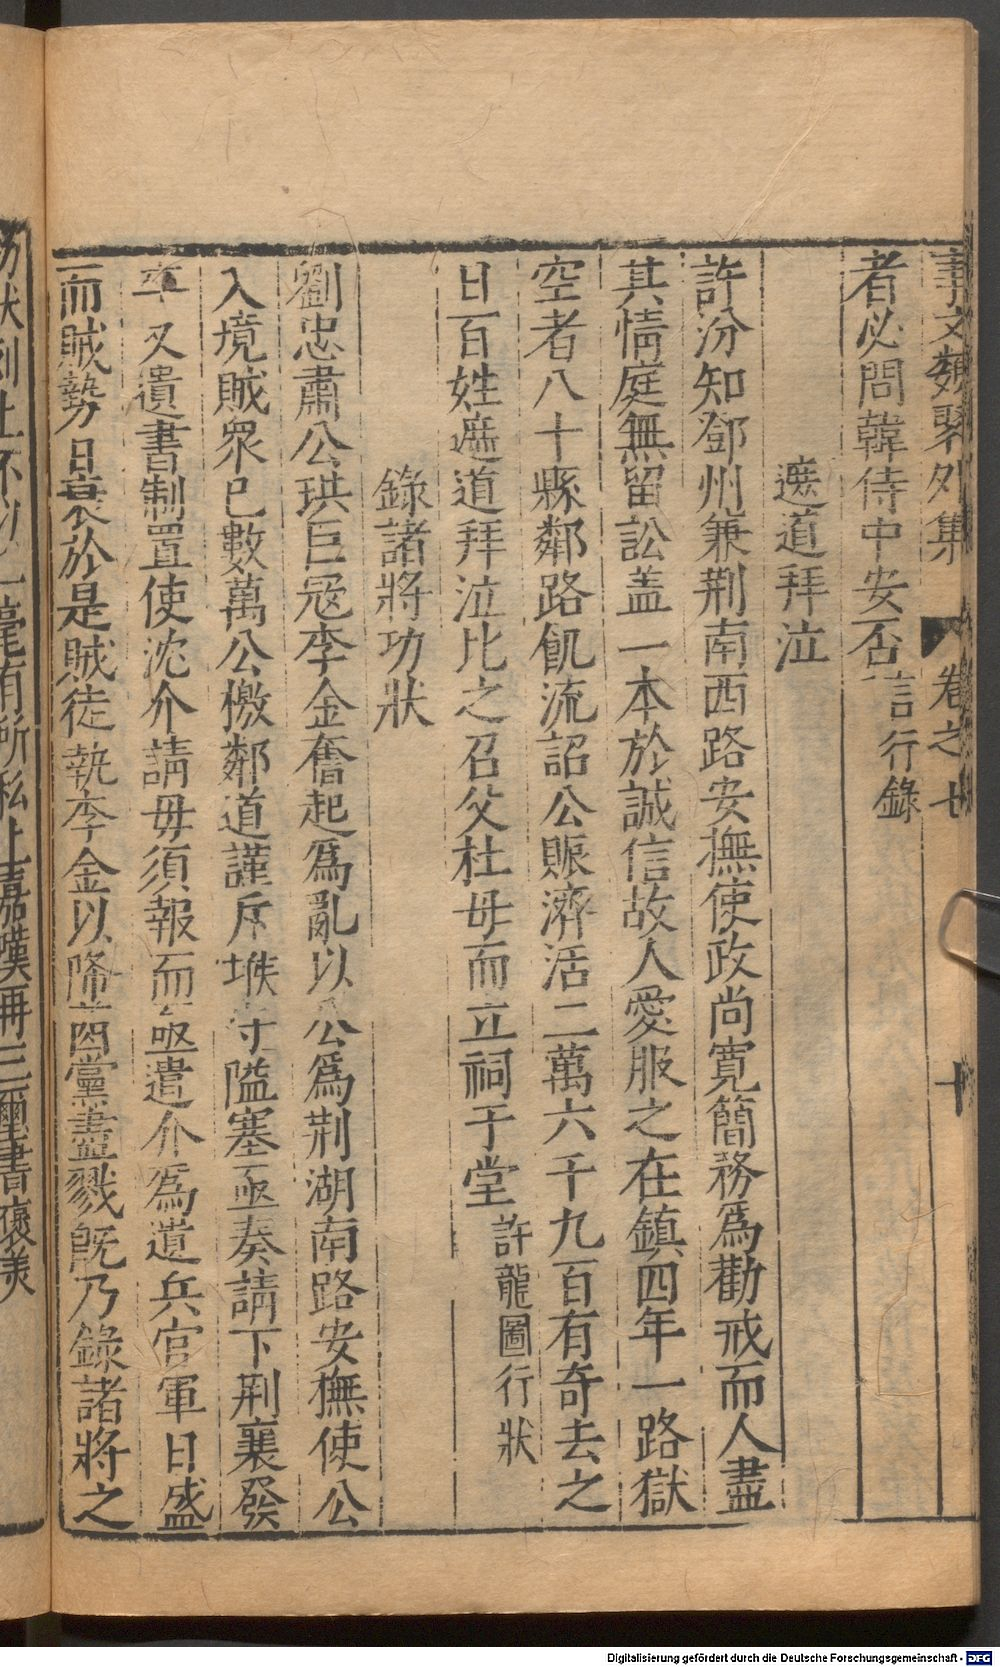 事文類聚外集 卷之七 十
者必問韓侍中安否言行錄
遮道拜泣
許汾知鄧州兼荆南西路安撫使政尚寬簡務爲勸戒而人盡
其情庭無留訟盖一本於誠信故人愛服之在鎮四年一路獄
空者八十縣鄰路飢流詔公賑濟活二萬六千九百有奇去之
日百姓遮道拜泣比之召父杜母而立祠于堂許龍圖行狀
錄諸將功狀
劉忠肅公珙巨冦李金奮起爲亂以公爲荆湖南路安撫使公
入境賊衆已數萬公檄鄰道謹斥堠守隘塞亟奏請下荆襄發
卒又遺書制置使沈介請毋須報而亟遣介爲遣兵官軍日盛
而賊勢日衰於是賊徒執李金以降黨盡戮旣乃錄諸將之
功狀列上不以一毫有所私上嘉嘆再三璽書褒美
Digitalisierung gefördert durch die Deutsche Forschungsgemeinschaft - DFG